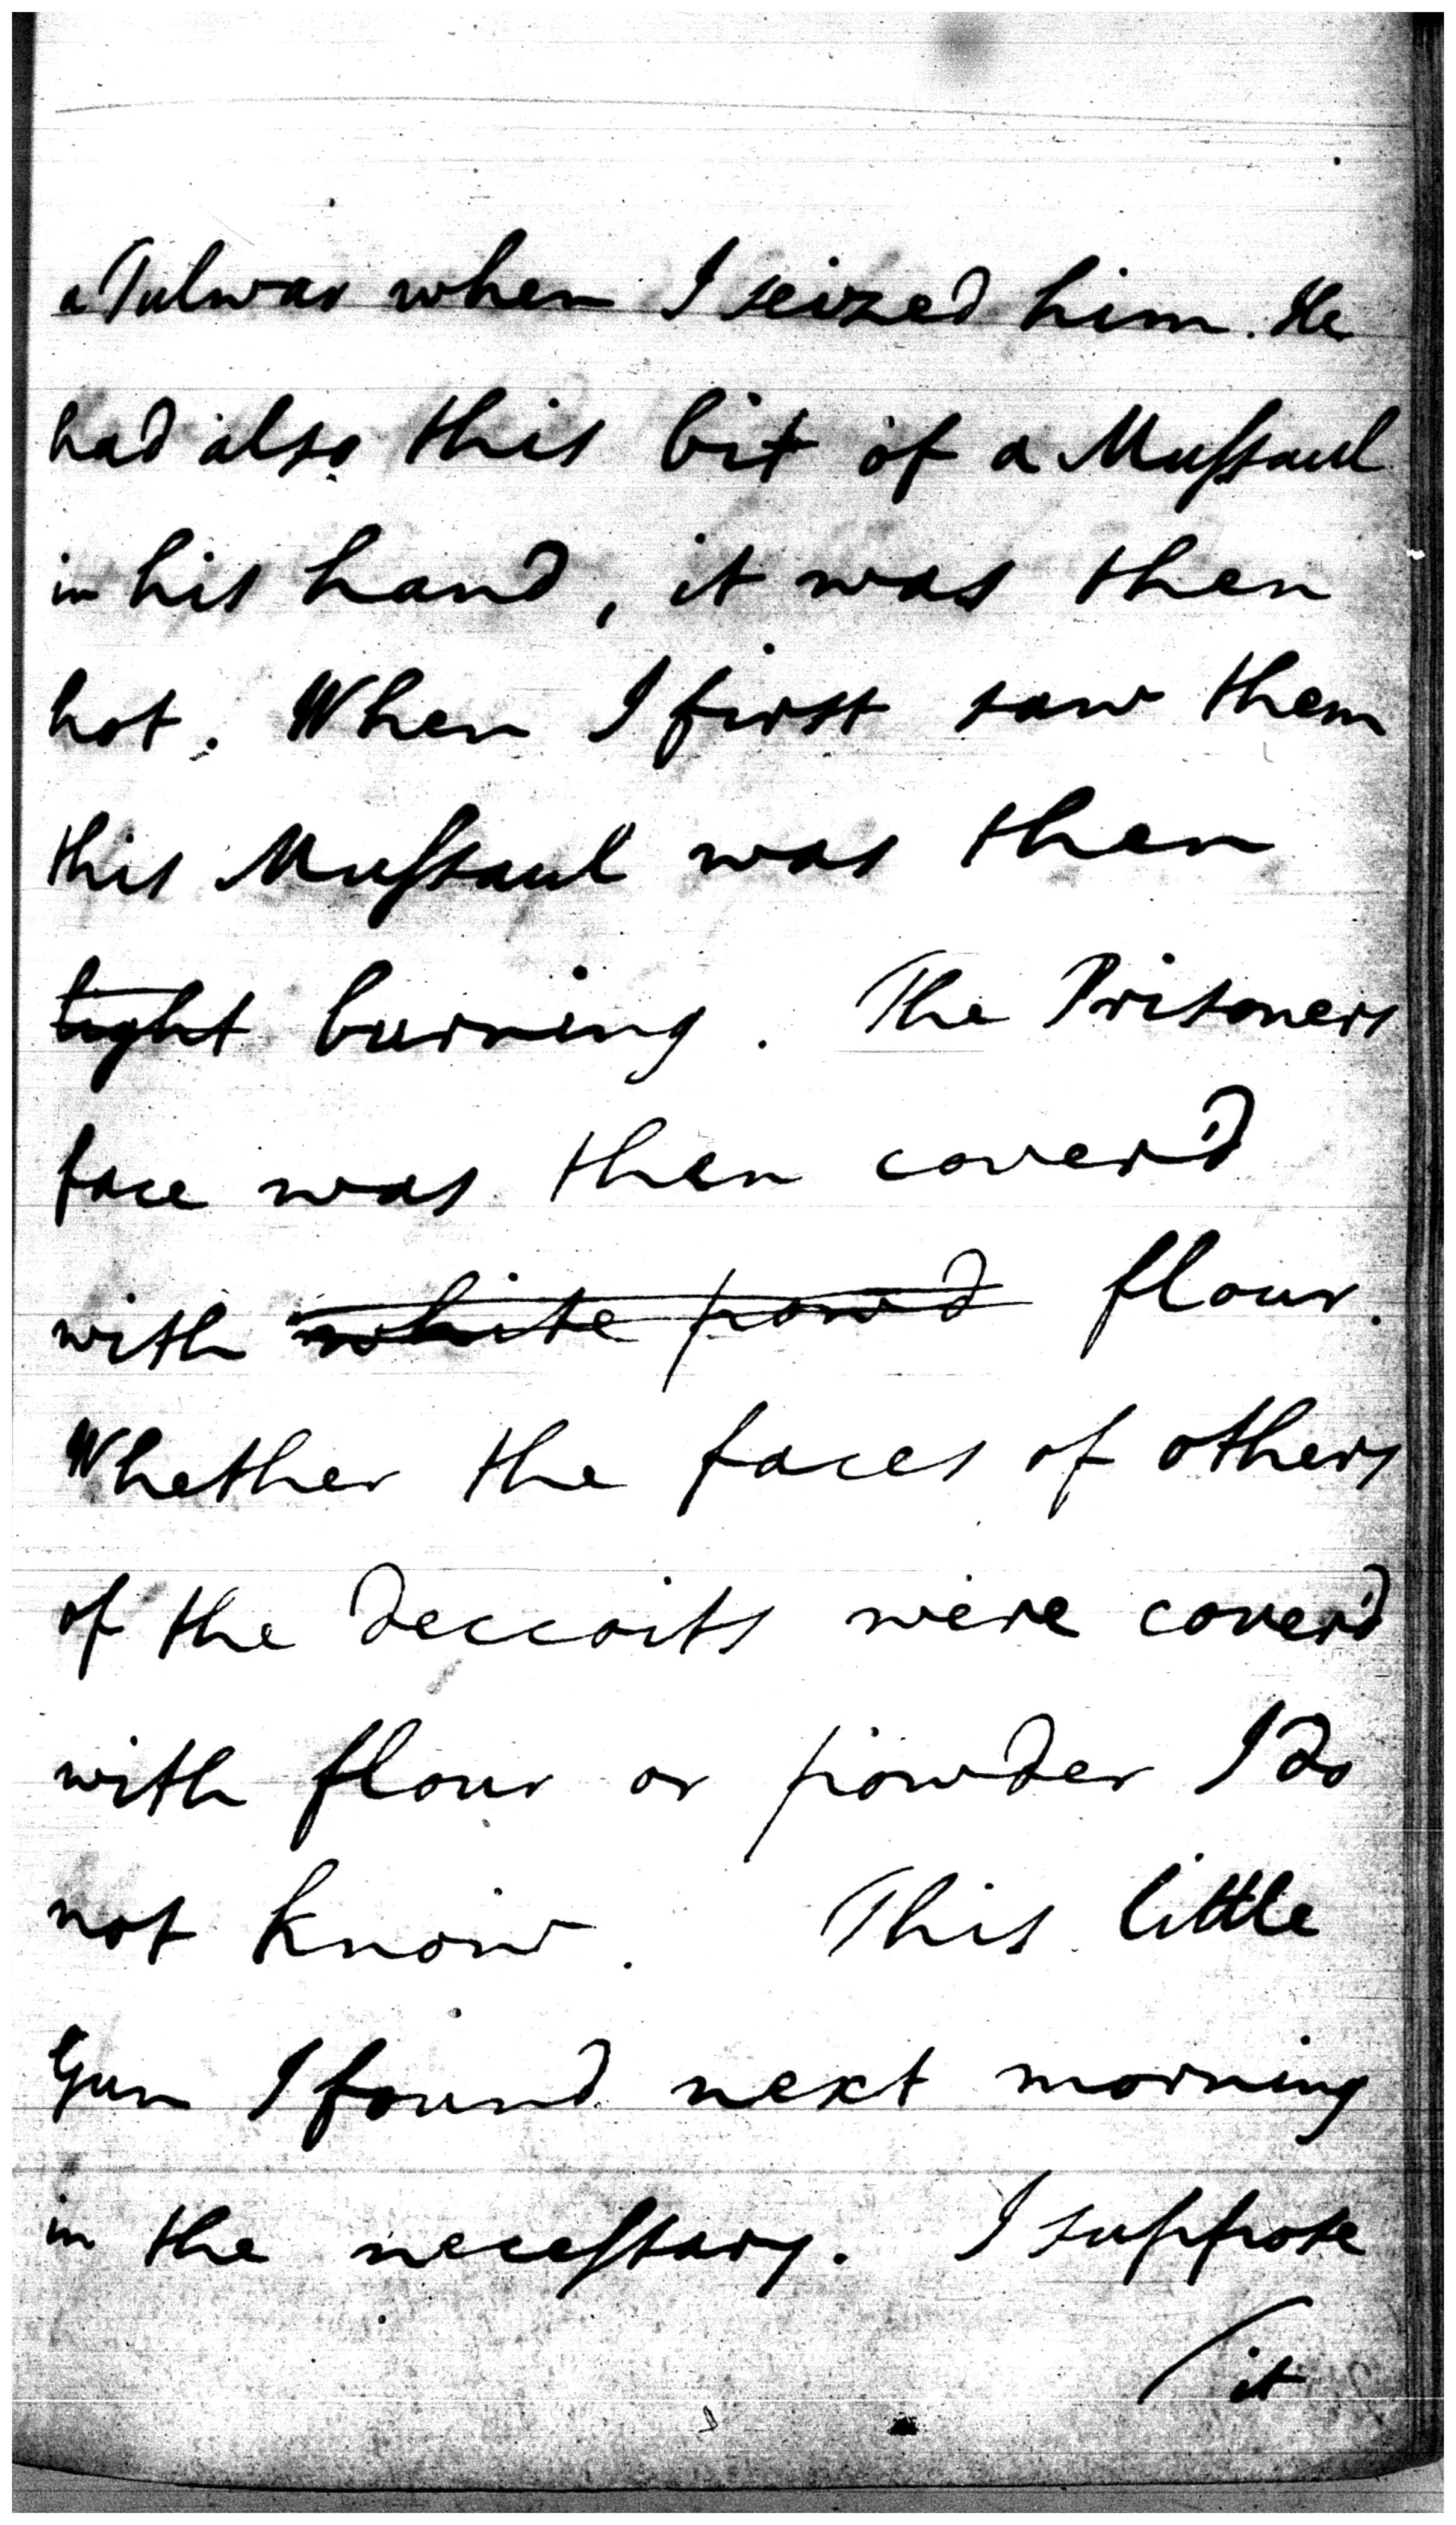 a Tulwar when I seized him. He
had also this bit of a Mussaul
in his hand, it was then
hot. When I first saw them
this Mussaul was then
light burning. The Prisoners
face was then cover'd
with white powd flour.
Whether the faces of others
of the deccoits were cover'd
with flour or powder I do
not know. This little
Gun I found next morning
in the necessary. I suppose
(it